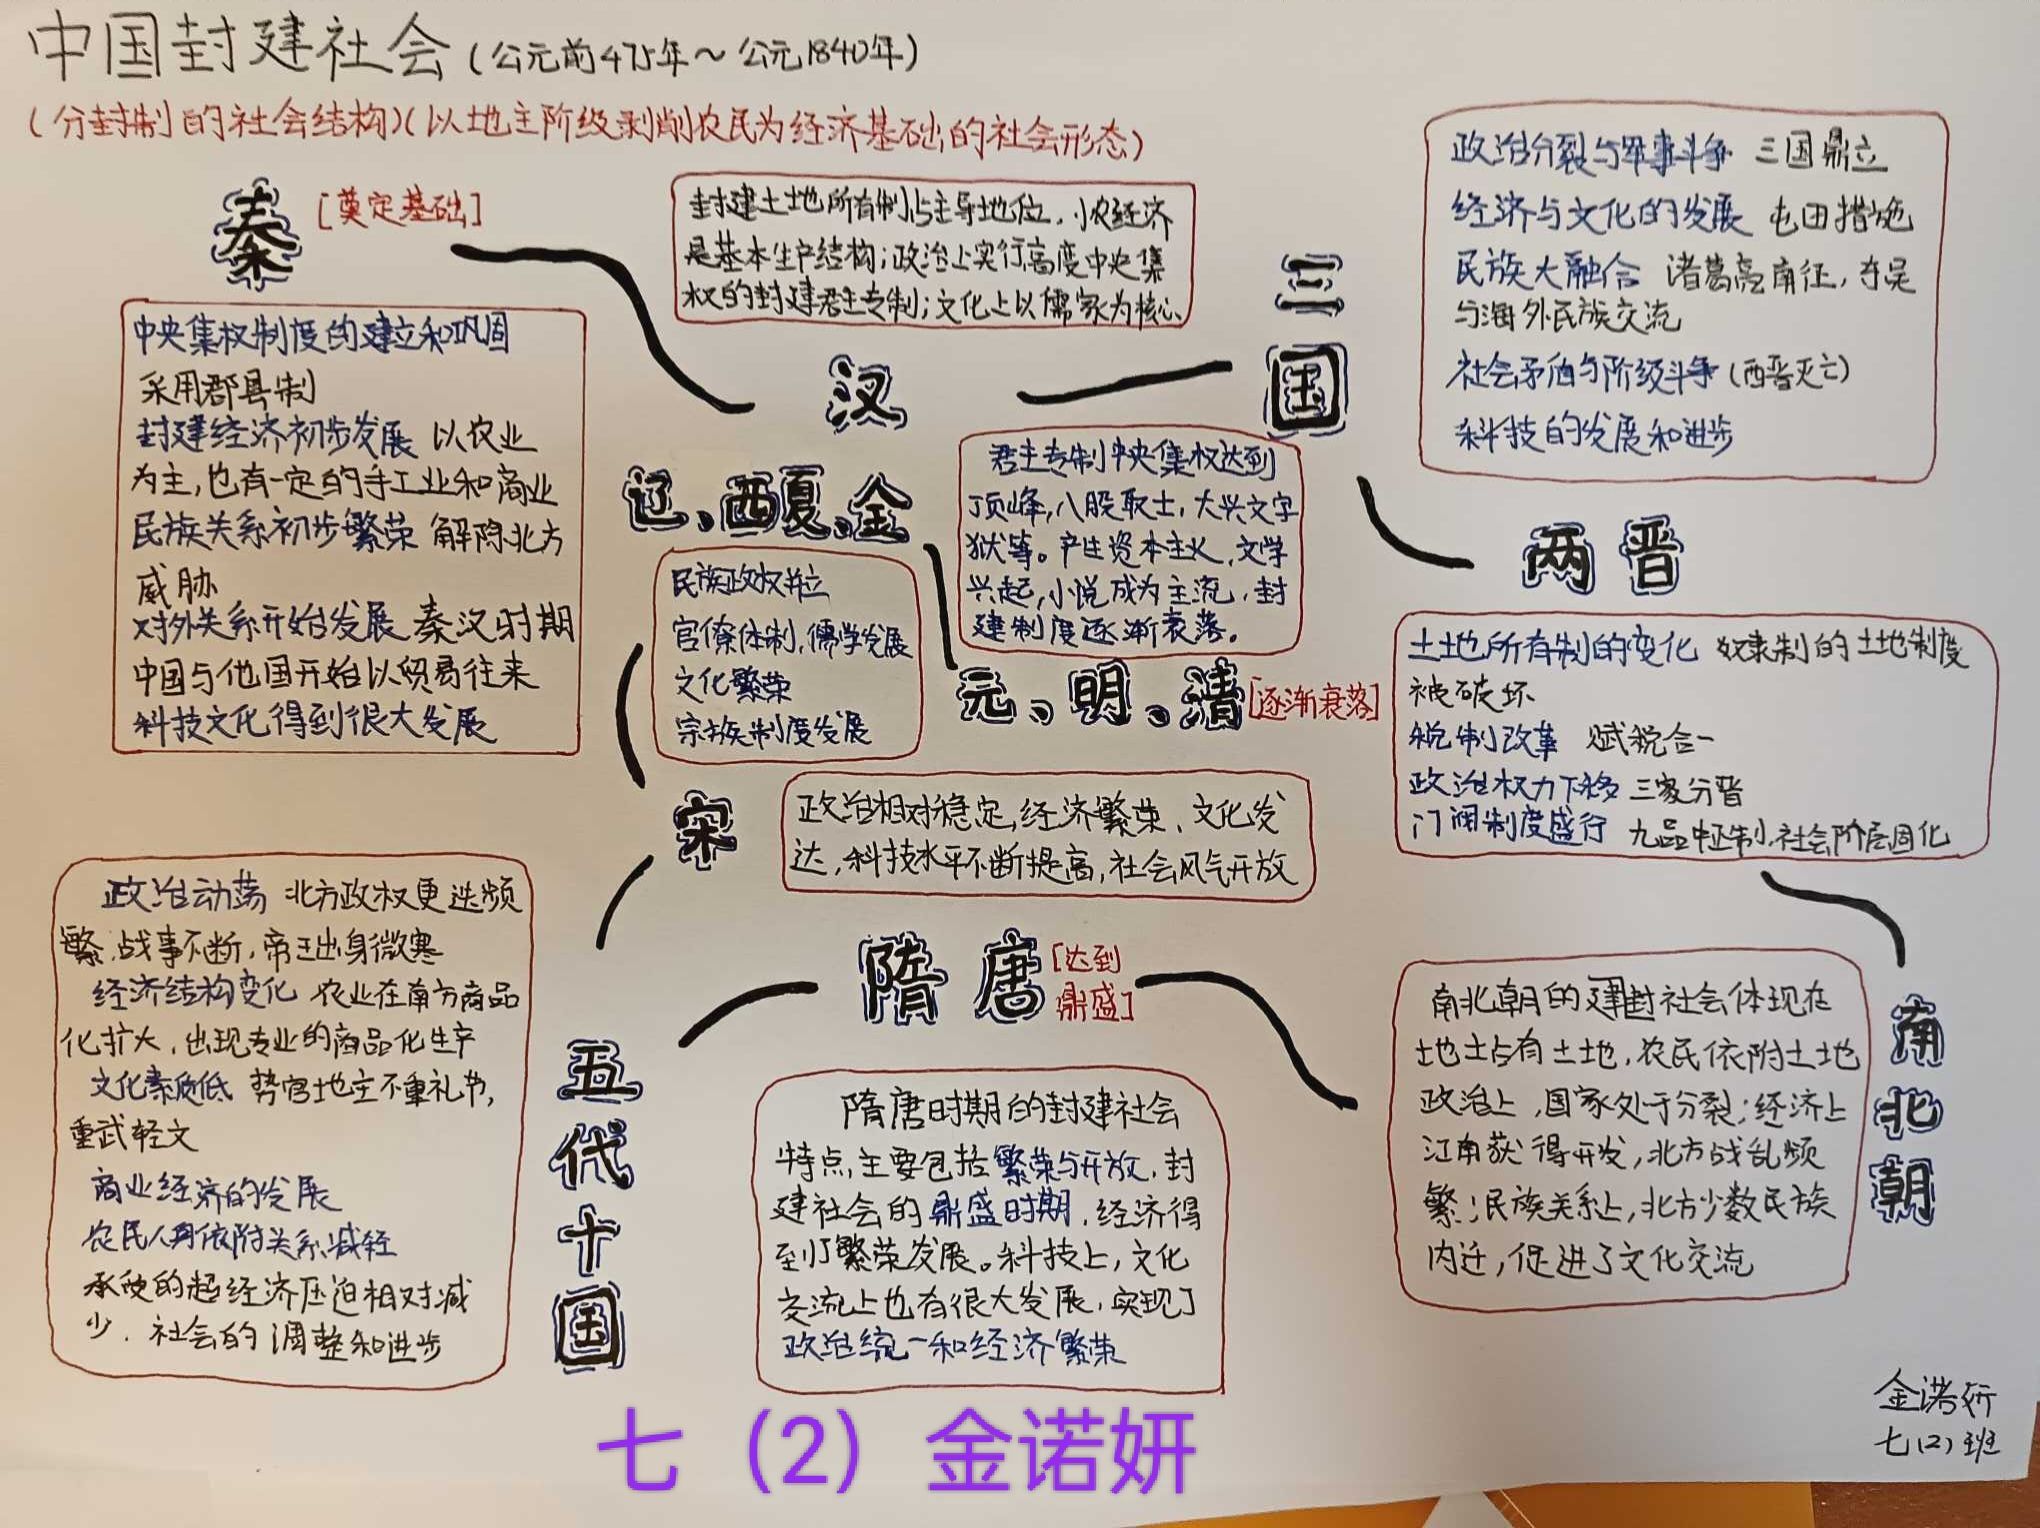 中国封建社会(公元前475年～公元1840年)
(分封制的社会结构)(以地主阶级剥削农民为经济基础的社会形态)
秦[奠定基础]
中央集权制度的建立和巩固
采用郡县制
封建经济初步发展 以农业
为主,也有一定的手工业和商业
民族关系初步繁荣 解除北方
威胁
对外关系开始发展 秦汉时期
中国与他国开始以贸易往来
科技文化得到很大发展
封建土地所有制占主导地位,小农经济
是基本生产结构;政治上实行高度中央集
权的封建君主专制;文化上以儒家为核心
汉
三国
政治分裂与军事斗争 三国鼎立
经济与文化的发展 屯田措施
民族大融合 诸葛亮南征,东吴
与海外民族交流
社会矛盾与阶级斗争(西晋灭亡)
科技的发展和进步
两晋
土地所有制的变化 奴隶制的土地制度
被破坏
税制改革 赋税合一
政治权力下移 三家分晋
门阀制度盛行 九品中正制,社会阶层固化
南北朝
南北朝的建封社会体现在
地主占有土地,农民依附土地
政治上,国家处于分裂;经济上
江南获得开发,北方战乱频
繁;民族关系上,北方少数民族
内迁,促进了文化交流
隋唐[达到
鼎盛]
隋唐时期的封建社会
特点,主要包括繁荣与开放,封
建社会的鼎盛时期,经济得
到了繁荣发展。科技上,文化
交流上也有很大发展,实现了
政治统一和经济繁荣
五代十国
政治动荡 北方政权更迭频
繁,战事不断,帝王出身微寒
经济结构变化 农业在南方商品
化扩大,出现专业的商品化生产
文化素质低 势官地主不重礼节,
重武轻文
商业经济的发展
农民人身依附关系减轻
承受的超经济压迫相对减
少,社会的调整和进步
宋
政治相对稳定,经济繁荣,文化发
达,科技水平不断提高,社会风气开放
辽、西夏、金
民族政权并立
官僚体制,儒学发展
文化繁荣
宗族制度发展
元、明、清[逐渐衰落]
君主专制中央集权达到
顶峰,八股取士,大兴文字
狱等。产生资本主义,文学
兴起,小说成为主流,封
建制度逐渐衰落。
金诺妍
七(2)班
七（2）金诺妍